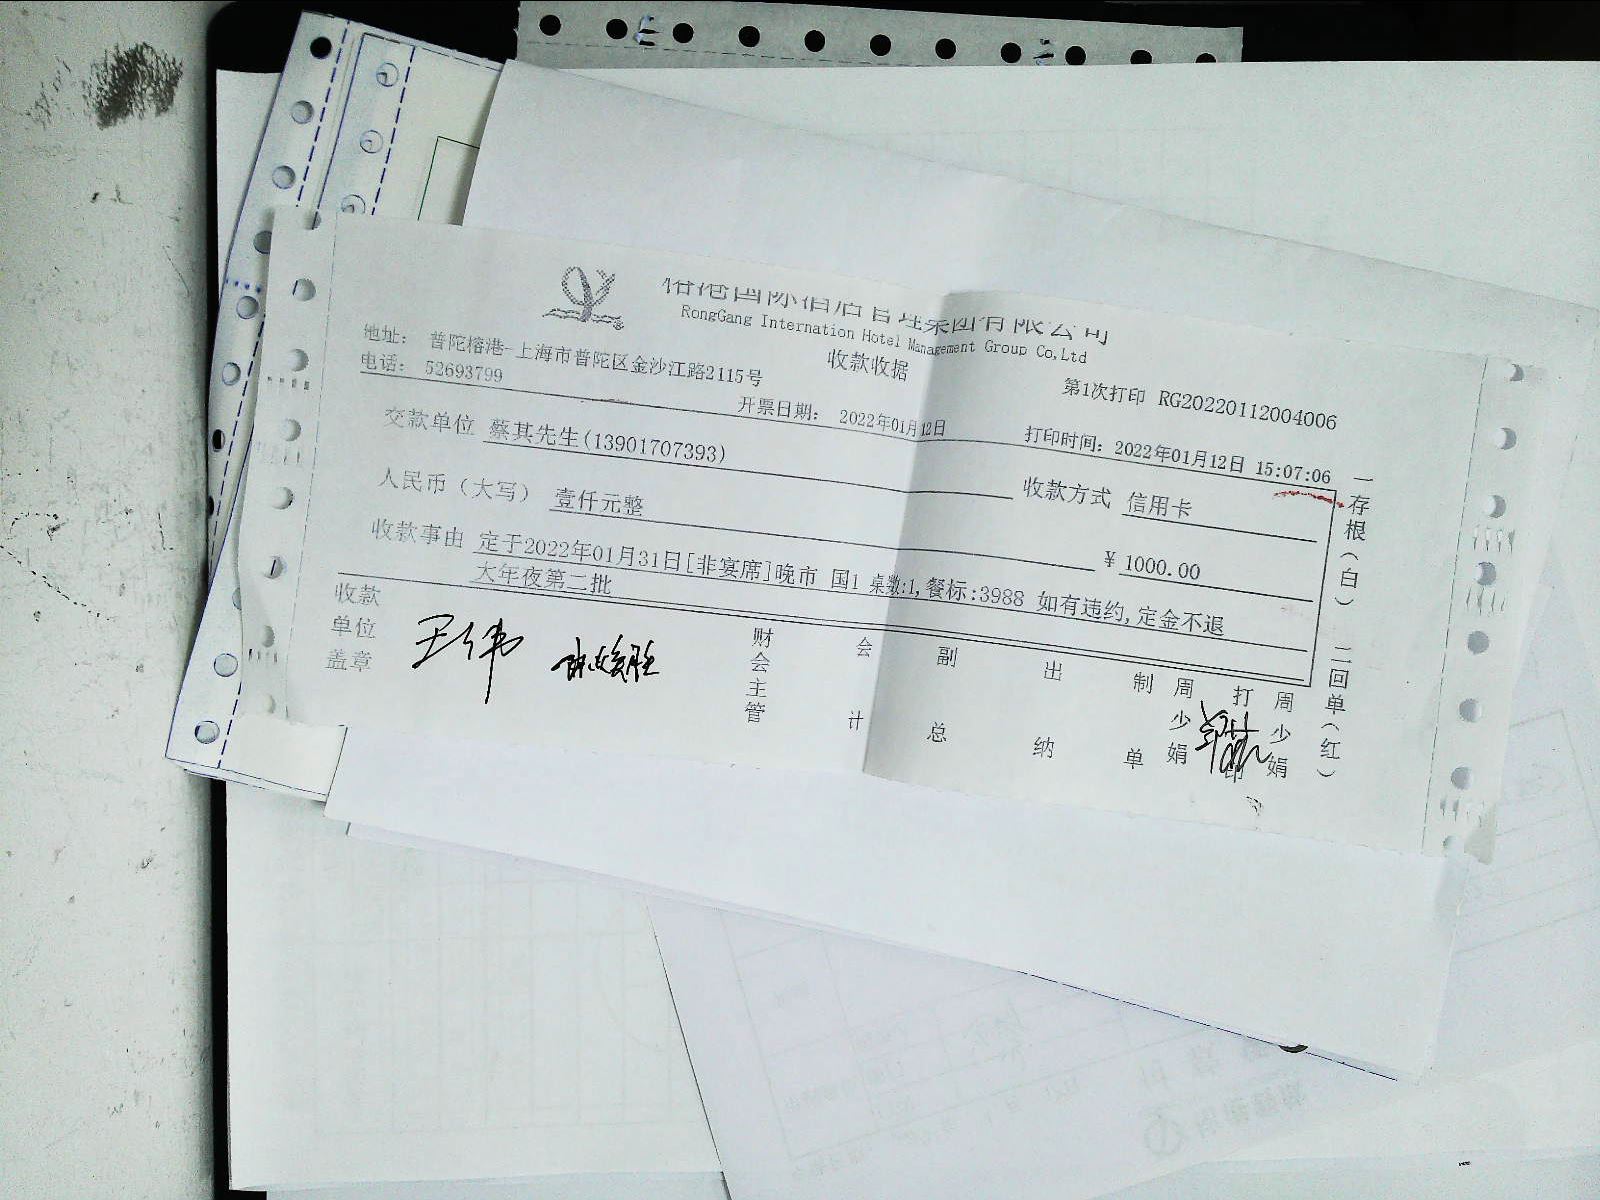 榕港国际酒店管理集团有限公司
RongGang Internation Hotel Management Group Co,Ltd
收款收据
地址: 普陀榕港-上海市普陀区金沙江路2115号
第1次打印 RG20220112004006
电话: 52693799
开票日期: 2022年01月12日
打印时间: 2022年01月12日 15:07:06
交款单位 蔡其先生(13901707393)
收款方式 信用卡
人民币(大写) 壹仟元整
¥ 1000.00
收款事由 定于2022年01月31日[非宴席]晚市 国1 桌数:1,餐标:3988 如有违约,定金不退
大年夜第二批
收款单位盖章
王伟
财会主管
会计
副总
出纳
制单
周少娟
打印
周少娟
一存根(白) 二回单(红)